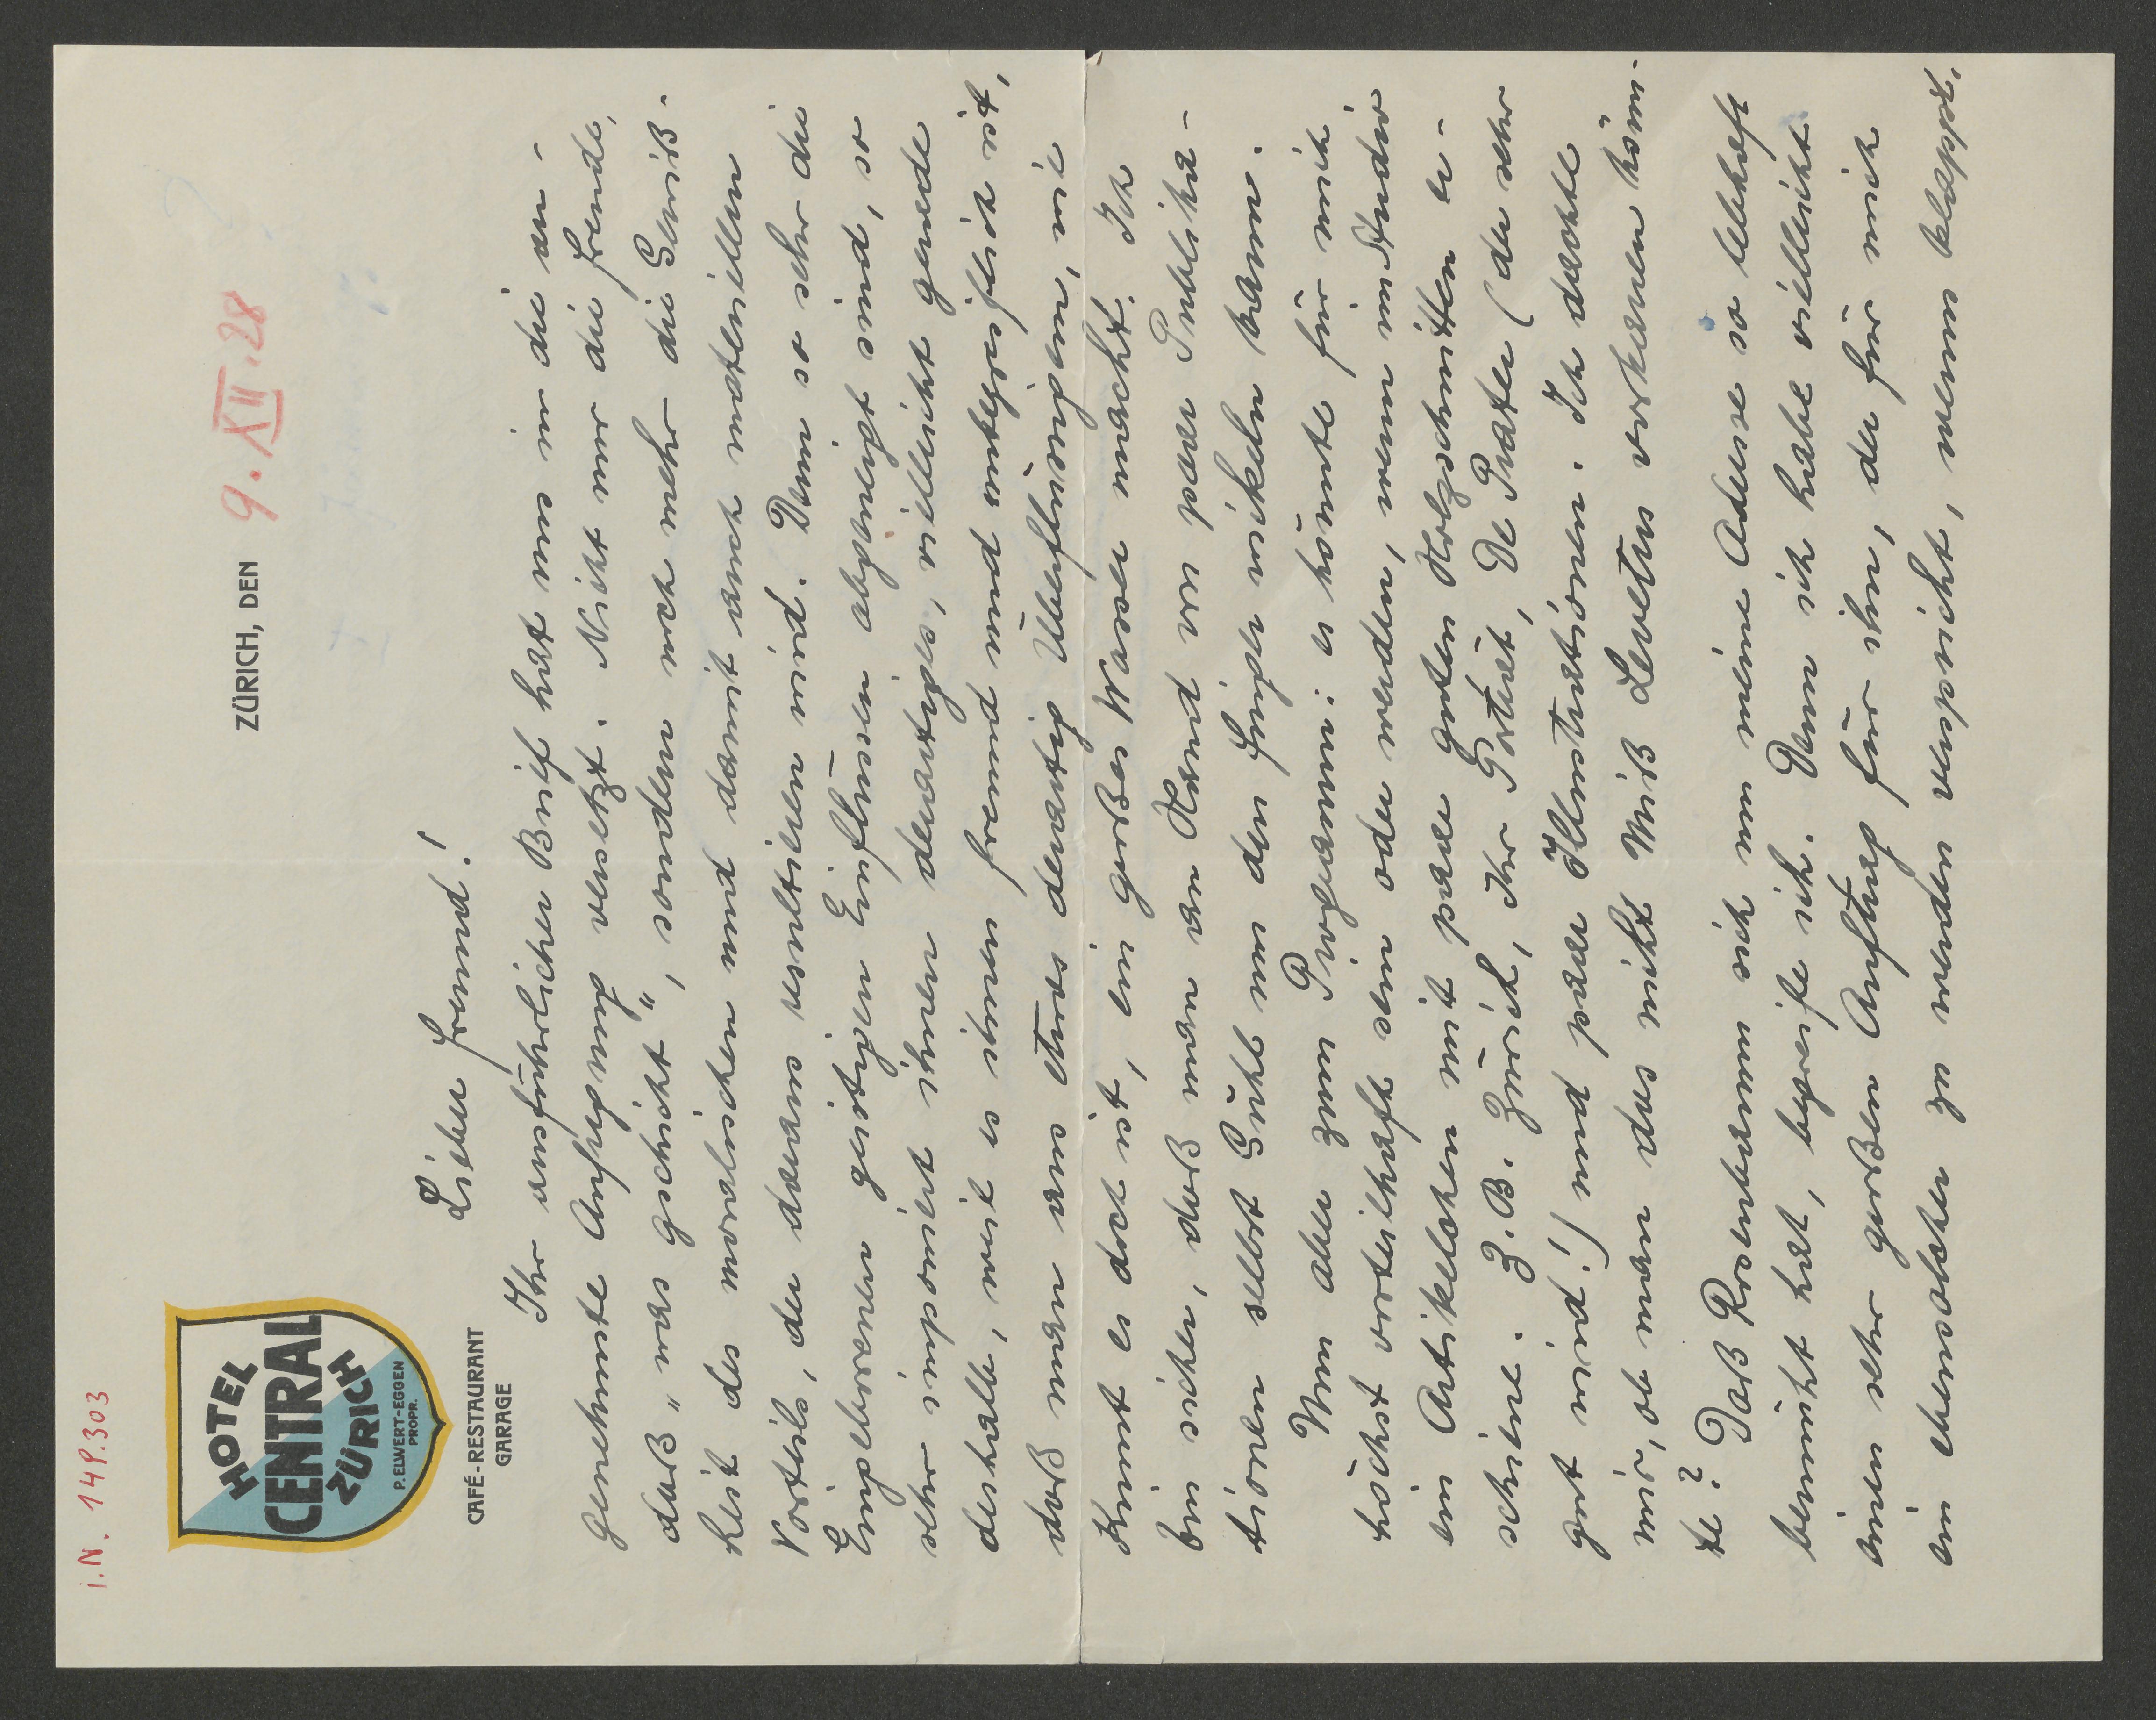 i.N. 149.303
HOTEL
CENTRAL
ZÜRICH
P. ELWERT-EGGEN
PROPR.
CAFÉ-RESTAURANT
GARAGE
ZÜRICH, DEN 9. XII. 28
Lieber Freund!
Ihr ausführlicher Brief hat uns in die an-
genehmste Aufregung versetzt. Nicht nur die Freude,
daß „was gschicht", sondern noch mehr die Gewiß-
heit des moralischen und damit auch materiellen
Vorteils, der daraus resultieren wird. Denn so sehr die
Eingeborenen geistigen Einflüssen abgeneigt sind, so
sehr imponiert ihnen derartiges, vielleicht gerade
deshalb, weil es ihnen fremd und unbegreiflich ist,
daß man aus etwas derartig Überflüssigem, wie
Kunst es doch ist, ein großes Wasser macht. Ich
bin sicher, daß man an Hand von paar Publika-
tionen selbst Gubl um den Finger wickeln kann.
Nun aber zum Programm: es könnte für mich
höchst vorteilhaft sein oder werden, wenn im Studio
ein Artikelchen mit paar guten Holzschnitten er-
schiene. Z. B. Zürich, Ihr Porträt, De Prater (der sehr
gut wird!) und paar Illustrationen. Ich dachte
mir, ob man das nicht Miß Levetus vorkauen könn-
te? Daß Rosenbaum sich um meine Adresse so lebhaft
bemüht hat, begreife ich. Denn ich habe vielleicht
einen sehr großen Auftrag für ihn, der für mich
ein ebensolcher zu werden verspricht, wenn klappt.